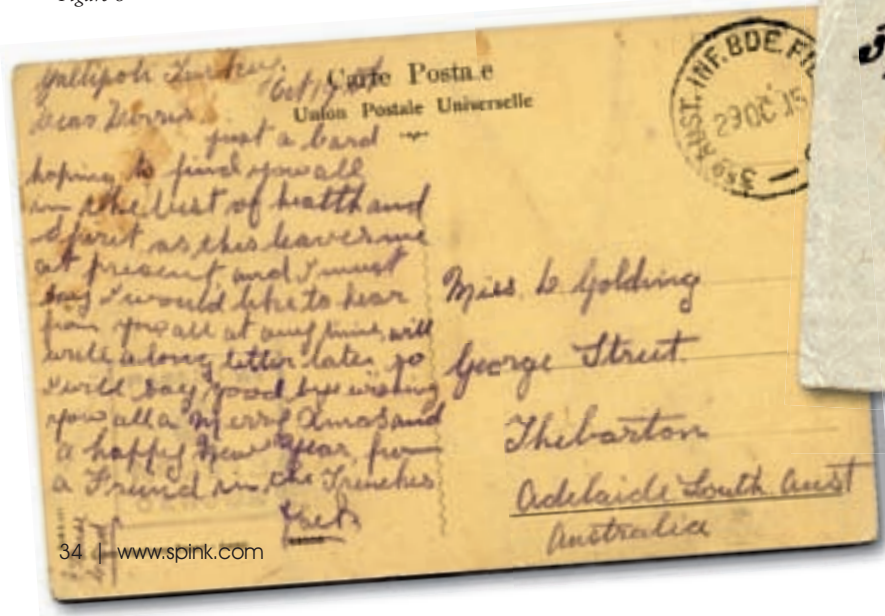 Gallipoli Turkey.
Carte Postale
Union Postale Universelle
3RD AUST. INF. BDE. FI
29 OC 15
just a card
hoping to find you all
in the best of health and
spirit as this leaves me
at present and I must
say I would like to hear
from you all at any time, will
write a long letter later, so
I will say good bye wishing
you all a Merry Xmas and
a happy New Year, from
a Friend in the Trenches
Miss. Golding
George Street.
Thebarton
Adelaide South Aust
Australia
34 | www.spink.com